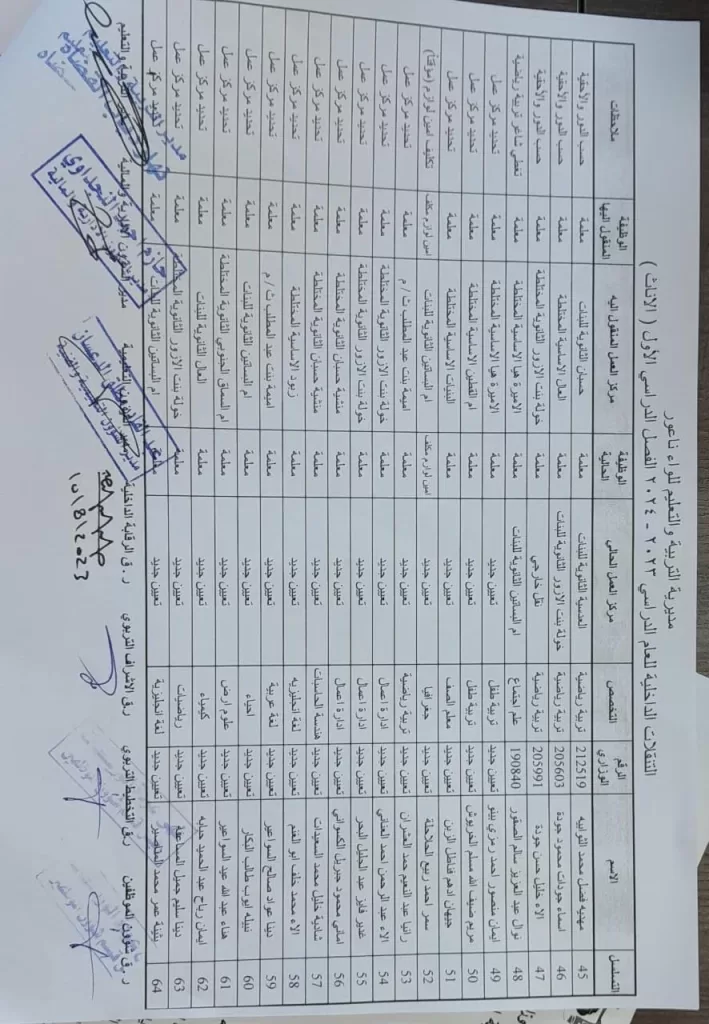 مديرية التربية والتعليم للواء ناعور
التنقلات الداخلية للعام الدراسي ٢٠٢٣ - ٢٠٢٤ الفصل الدراسي الأول ( الاناث )
التسلسل الاسم الرقم الوزاري التخصص مركز العمل الحالي الوظيفة الحالية مركز العمل المنقول اليه الوظيفة المنقول اليها ملاحظات
45 مهديه فضل محمد التوايهه 212519 تربية رياضية العدسية الثانوية للبنات معلمة حسبان الثانوية للبنات معلمة حسب الدور والأحقية
46 اسماء جودات محمود جودة 205603 تربية رياضية خولة بنت الازور الثانوية للبنات معلمة العال الاساسية المختلطة معلمة حسب الدور والأحقية
47 الاء خليل حسن جودة 205991 تربية رياضية نقل خارجي معلمة خولة بنت الازور الثانوية المختلطة معلمة حسب الدور والأحقية
48 نوال عبد العزيز سالم الصقور 190840 علم اجتماع ام البساتين الثانوية للبنات معلمة الاميرة هيا الاساسية المختلطة معلمة تغطي شاغر تربية رياضية
49 ايمان منصور احمد رمزي بينو تعيين جديد تربية طفل تعيين جديد معلمة الاميرة هيا الاساسية المختلطة معلمة تحديد مركز عمل
50 مريم ضيف الله مسلم الحربوش تعيين جديد تربية طفل تعيين جديد معلمة ام القطين الاساسية المختلطة معلمة تحديد مركز عمل
51 جيهان ادهم فاضل الزبن تعيين جديد معلم الصف تعيين جديد معلمة البنيات الاساسية المختلطة معلمة تحديد مركز عمل
52 سمر احمد ربيع الفلاحلة تعيين جديد جغرافيا تعيين جديد امين لوازم مكلف ام البساتين الثانوية للبنات امين لوازم مكلف تكليف امين لوازم (مؤقتا)
53 رانيا عبد النعيم محمد العشران تعيين جديد تربية رياضية تعيين جديد معلمة اميمة بنت عبد المطلب ث / م معلمة تحديد مركز عمل
54 الاء عبد الرحمن احمد العناني تعيين جديد ادارة اعمال تعيين جديد معلمة خولة بنت الازور الثانوية المختلطة معلمة تحديد مركز عمل
55 غدير فايز عبد الجليل البحر تعيين جديد ادارة اعمال تعيين جديد معلمة خولة بنت الازور الثانوية المختلطة معلمة تحديد مركز عمل
56 اماني محمود جبريل الكسواني تعيين جديد ادارة اعمال تعيين جديد معلمة منشية حسبان الثانوية المختلطة معلمة تحديد مركز عمل
57 شادية خليل محمد السعيدات تعيين جديد هندسة الحاسبات تعيين جديد معلمة منشية حسبان الثانوية المختلطة معلمة تحديد مركز عمل
58 الاء محمد خلف ابو الغنم تعيين جديد لغة انجليزيه تعيين جديد معلمة زبود الاساسية المختلطة معلمة تحديد مركز عمل
59 دينا عواد صالح السواعير تعيين جديد لغة عربية تعيين جديد معلمة اميمة بنت عبد المطلب ث / م معلمة تحديد مركز عمل
60 نبيله ايوب طالب البكار تعيين جديد احياء تعيين جديد معلمة ام البساتين الثانوية للبنات معلمة تحديد مركز عمل
61 هناء عبد الله عيد السواعير تعيين جديد علوم ارض تعيين جديد معلمة ام السماق الجنوبي الثانوية المختلطة معلمة تحديد مركز عمل
62 ايمان رباح عبد الحميد حبايبه تعيين جديد كيمياء تعيين جديد معلمة العال الثانوية للبنات معلمة تحديد مركز عمل
63 دينا سليم جميل المساعفة تعيين جديد رياضيات تعيين جديد معلمة خولة بنت الازور الثانوية المختلطة معلمة تحديد مركز عمل
64 بثينة عمر محمد المناصير تعيين جديد لغة انجليزية تعيين جديد معلمة ام البساتين الثانوية للبنات معلمة تحديد مركز عمل
ر.ق شؤون الموظفين ر.ق التخطيط التربوي ر.ق الاشراف التربوي ر.ق الرقابة الداخلية مدير الشؤون التعليمية مدير الشؤون الادارية والمالية مدير التربية والتعليم